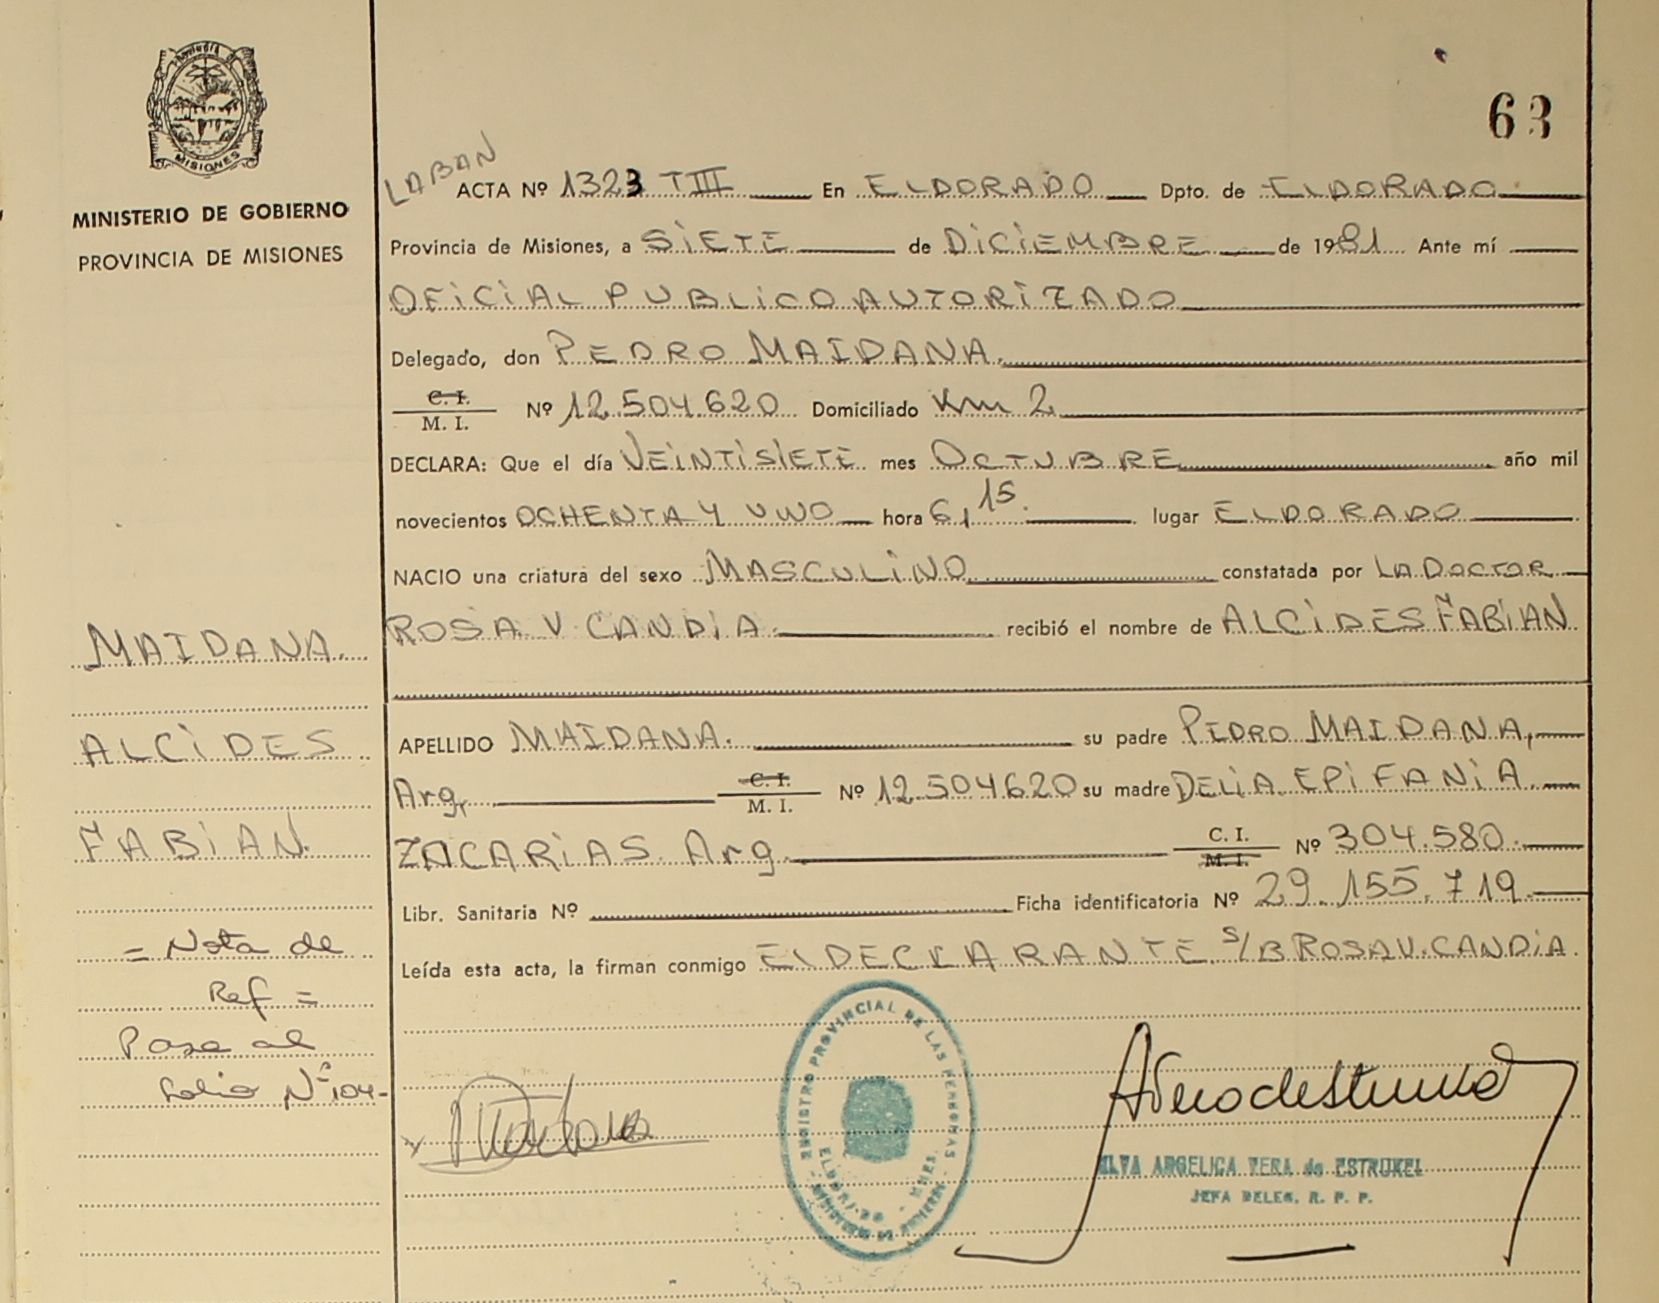 63
MISIONES
MINISTERIO DE GOBIERNO
PROVINCIA DE MISIONES
LABAN
ACTA Nº 1323 TIII En ELDORADO Dpto. de ELDORADO
Provincia de Misiones, a SIETE de DICIEMBRE de 1981 Ante mí
OFICIAL PUBLICO AUTORIZADO
Delegado, don PEDRO MAIDANA.
C. I.
M. I. Nº 12.504.620 Domiciliado Km 2
DECLARA: Que el día VEINTISIETE mes OCTUBRE año mil
novecientos OCHENTA Y UNO hora 6,15. lugar ELDORADO
NACIO una criatura del sexo MASCULINO constatada por LA DOCTOR
ROSA V CANDIA. recibió el nombre de ALCIDES FABIAN
MAIDANA.
ALCIDES
FABIAN.
APELLIDO MAIDANA. su padre PEDRO MAIDANA,
Arg, C. I.
M. I. Nº 12.504.620 su madre DELIA EPIFANIA
ZACARIAS Arg. C. I.
M. I. Nº 304.580.
Libr. Sanitaria Nº Ficha identificatoria Nº 29.155.719.
Leída esta acta, la firman conmigo EL DECLARANTE S/B ROSA V. CANDIA.
= Nota de
Ref =
Pase al
folio Nº 104-
REGISTRO PROVINCIAL DE LAS PERSONAS
ELDORADO
MNES.
MINISTERIO DE GOBIERNO
ANGELICA VERA de ESTRUKEL
JEFA DELEG. R. P. P.